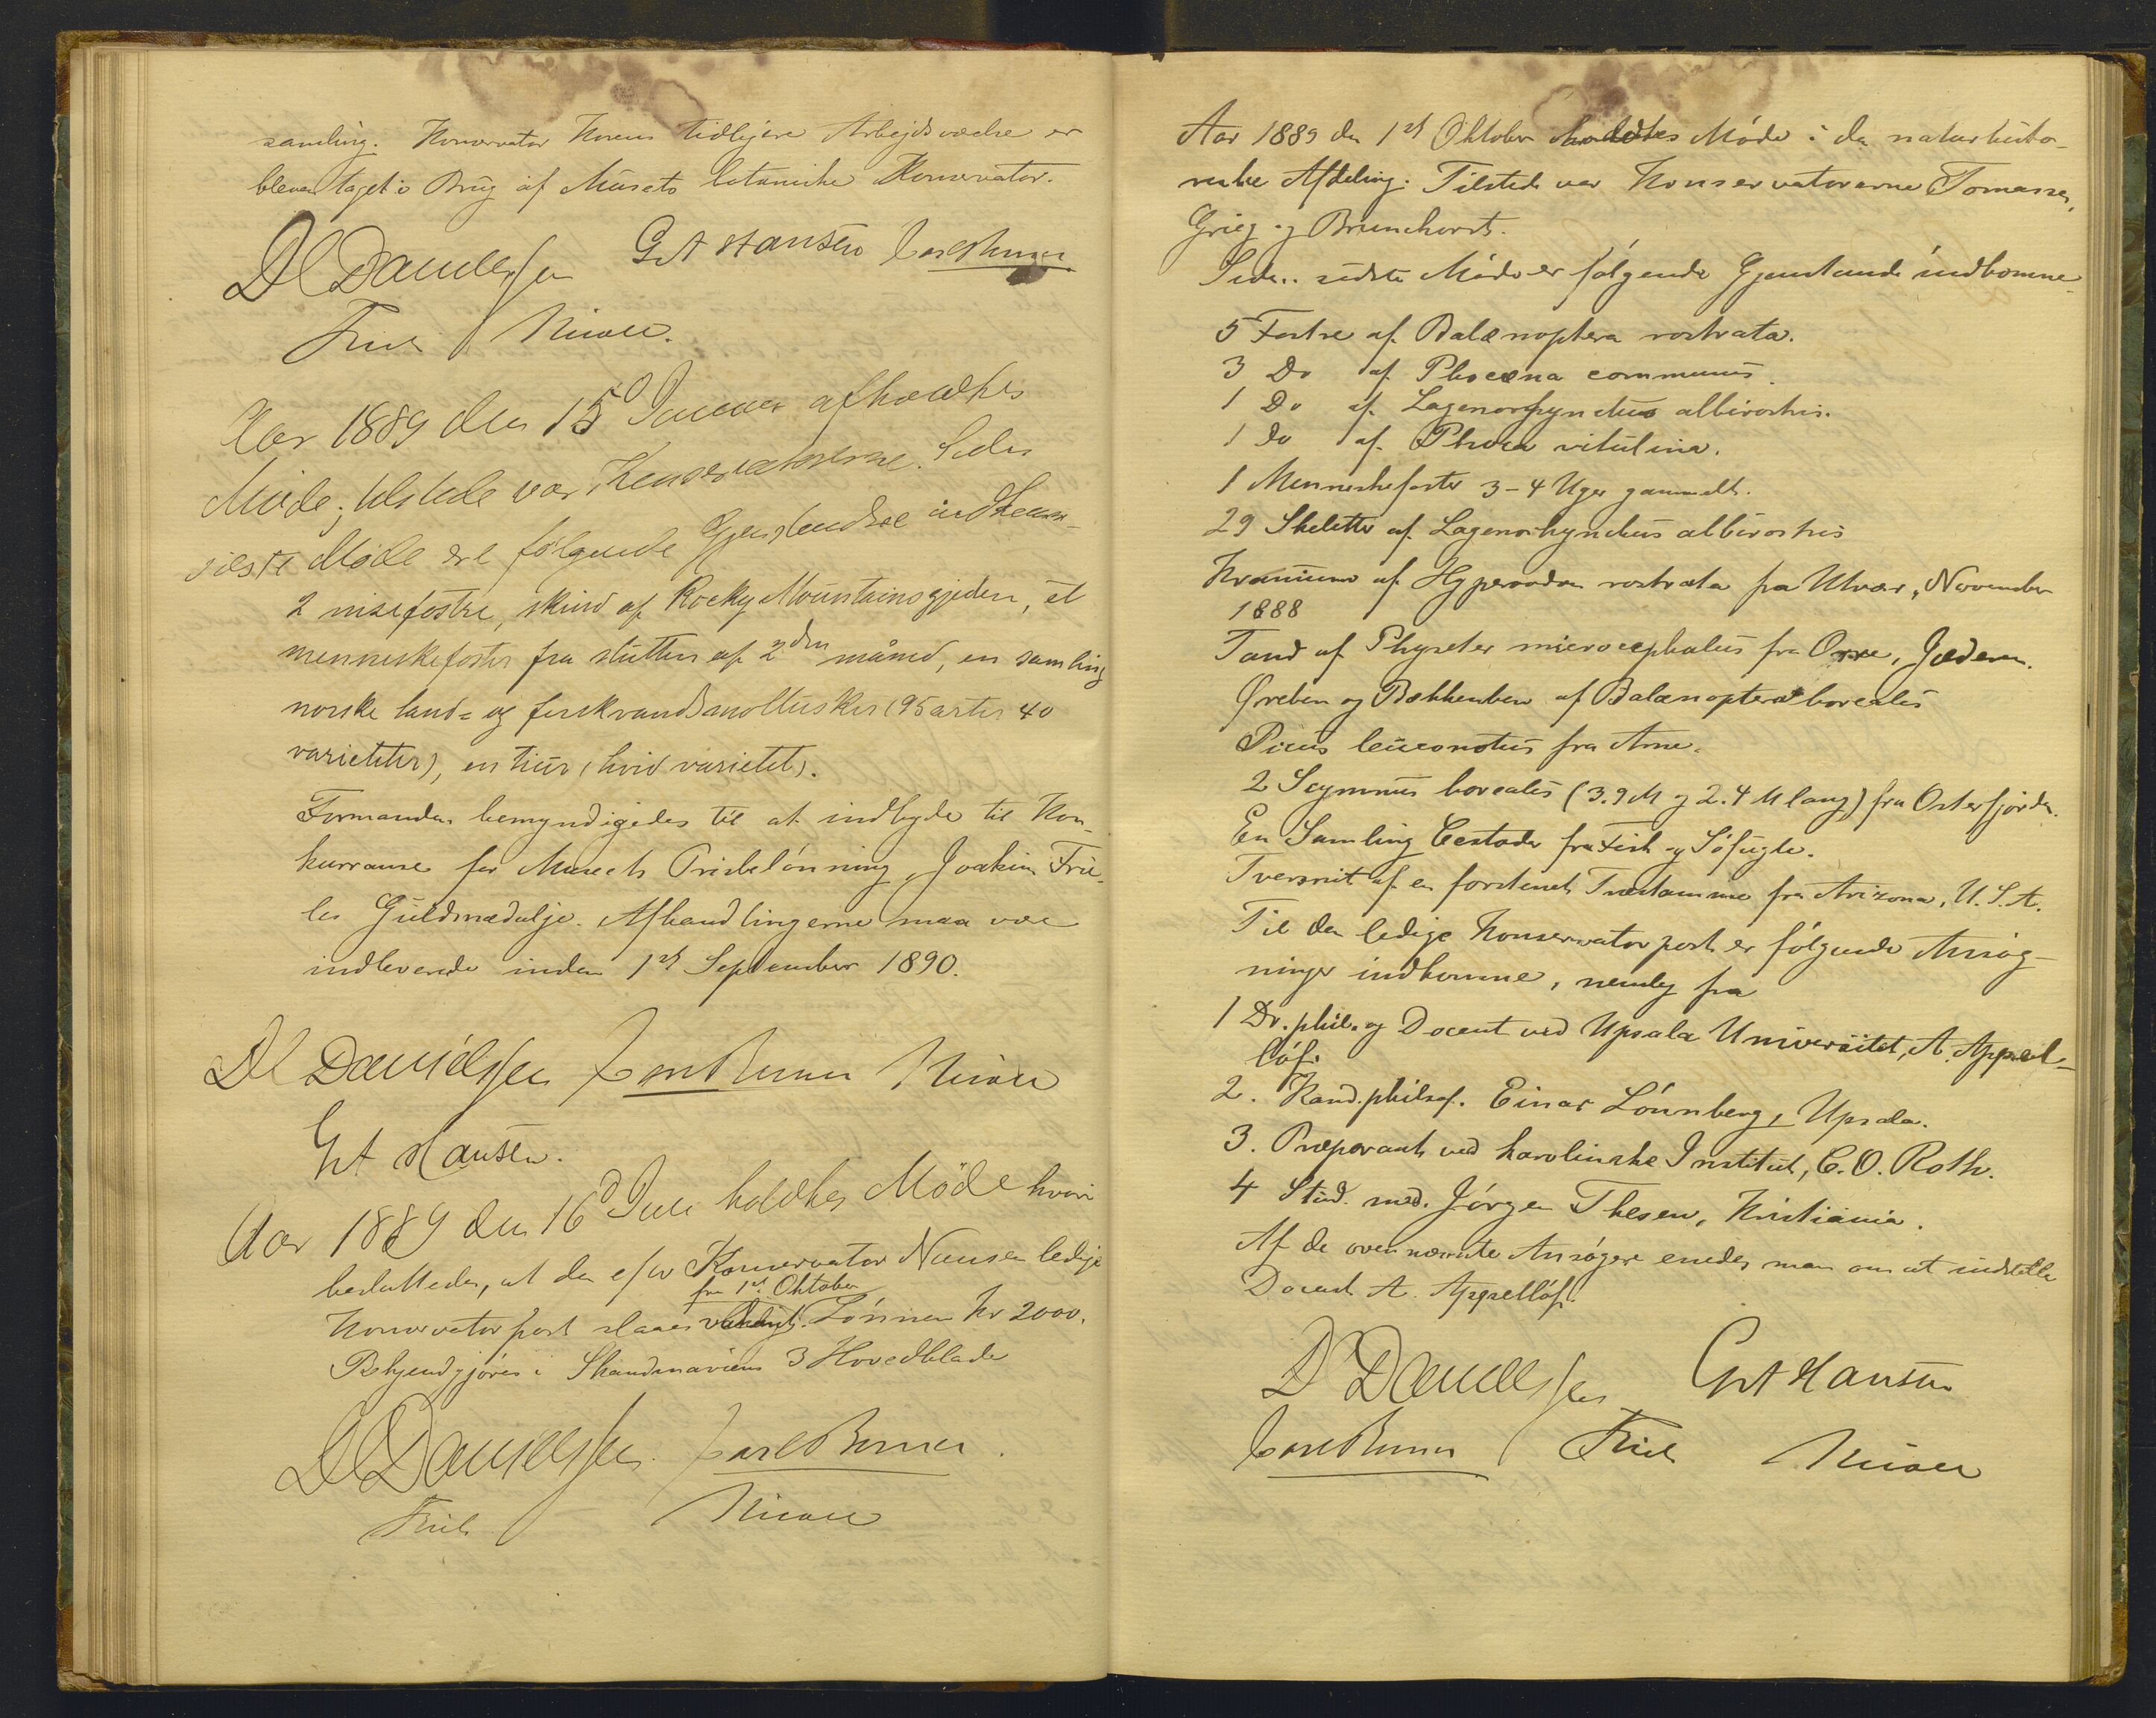 samling. Konservator Korens tidligere Arbejdsværelse er
bleven taget i Brug af Musets botaniske Konservator.
D C Danielssen G A Hansen Carl Berner
Friele Nicoll.
Aar 1889 den 15d Januar afholdtes
Møde; tilstede var Konservatorerne. Siden
sidste Møde ere følgende Gjenstandte indkom-
2 nisefostre, skind af Rocky Mountainsgjeden, et
menneskefoster fra slutten af 2den måned, en samling
norske land= og ferskvandsmollusker (95 arter 40
varieteter), en tiur (hvid varietet).
Formanden bemyndigedes til at indbyde til Kon-
kurranse for Museets Prisbelønning, Joakim Frie-
les Guldmedalje. Afhandlingerne maa være
indleverede inden 1st September 1890.
D C Danielssen Carl Berner Nicoll
G A Hansen.
Aar 1889 den 16d Juli holdtes Møde hvori
besluttedes, at den e/w Konservator Nansen ledige
fra 1st Oktober
Konservatorpost slaaes vakant. Lønnen Kr 2000.
Bekjendtgjøres i Skandinaviens 3 Hovedblade
D C Danielssen. Carl Berner.
Friele Nicoll
Aar 1889 den 1st Oktober holdtes Møde i den naturhisto-
riske Afdeling. Tilstede var Konservatorerne Tornøe,
Grieg og Brunchorst.
Siden sidste Møde er følgende Gjenstande indkomne
5 Fostre af Balænoptera rostrata.
3 Do af Phocæna communis.
1 Do af Lagenorhynchus albirostris.
1 Do af Phoca vitulina.
1 Menneskefoster 3-4 Uger gammelt.
29 Skeletter af Lagenorhynchus albirostris
Kranium af Hyperoodon rostrata fra Utvær, November
1888
Tand af Physeter microcephalus fra Orre, Jædern.
Øreben og Bækkenben af Balænoptera borealis
Picus leuconotus fra Arne.
2 Scymnus borealis (3.9 M og 2.4 M lang) fra Osterfjorden.
En Samling Cestoder fra Fisk og Søfugle.
Tversnit af en forstenet Træstamme fra Arizona, U.S.A.
Til den ledige Konservatorpost er følgende Ansøg-
ninger indkomne, nemlig fra
1 Dr. phil. og Docent ved Upsala Universitet, A. Appel-
löf.
2. Kand. philos. Einar Lönnberg, Upsala.
3. Præparant ved karolinske Institut, C. O. Roth.
4 Stud. med. Jørgen Thesen, Kristiania.
Af de ovennævnte Ansøgere enedes man om at indstille
Docent A. Appellöf.
D C Danielssen G A Hansen
Carl Berner Friele Nicoll